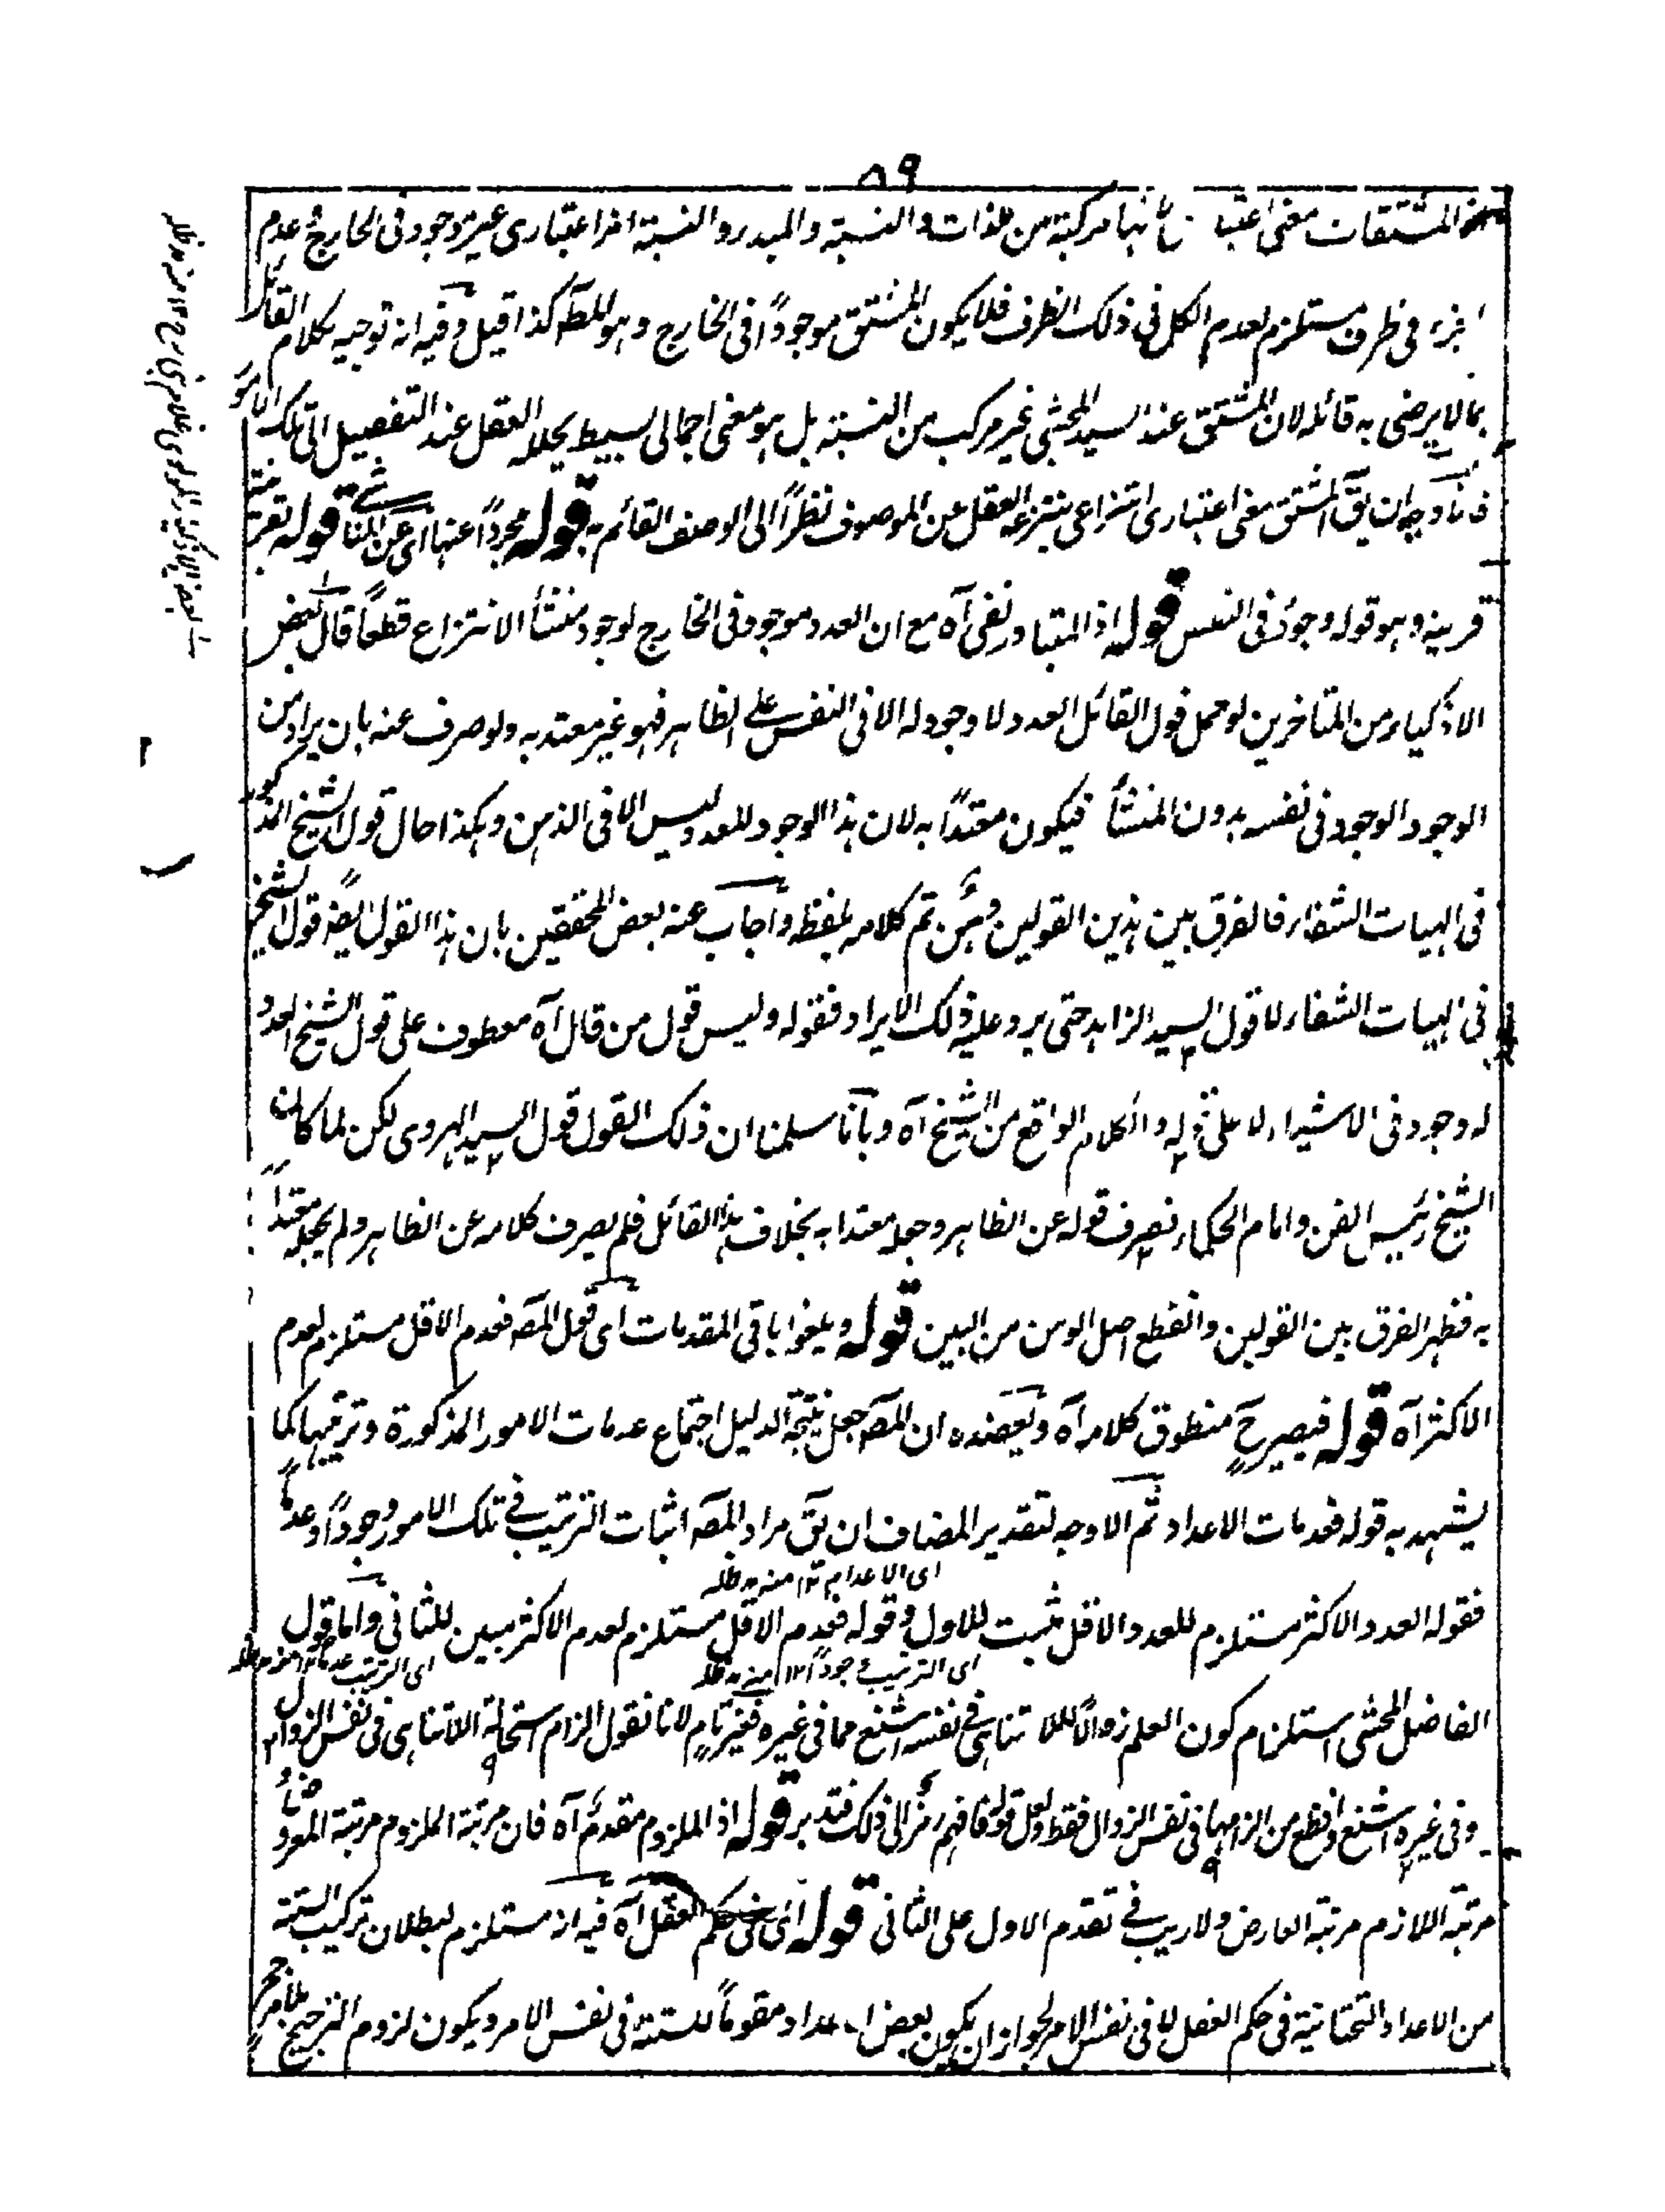 ٨٩
المشتقات معنى اعتبا بانها مركبة من الذات والنسبة والمبدء والنسبة امر اعتبارى غير موجود فى الخارج وعدم
الجزء فى ظرف مستلزم لعدم الكل فى ذلك الظرف فلا يكون المشتق موجوداً فى الخارج وهو المطه كذا قيل وفيه انه توجيه لكلام القائل
بما لا يرضى به قائله لان المشتق عند السيد المحشى غير مركب من النسبة بل هو معنى اجمالى بسيط يحلله العقل عند التفصيل الى تلك الامور
ان يق المشتق معنى اعتبارى انتزاعى ينتزعه العقل عن الموصوف نظراً الى الوصف القائم به قوله مجرداً عنها اى عن المنا شے قوله بقرينة
قرينة وهو قوله وجود فى النفس قوله اذ المتبادر نفى آه مع ان العدد موجود فى الخارج لوجود منشأ الانتزاع قطعاً قال بعض
الاذكياء من المتاخرين لو حمل قول القائل العدد لا وجود له الا فى النفس على الظاهر فهو غير معتد به ولو صرف عنه بان يراد من
الوجود الوجود فى نفسه بدون المنشأ فيكون معتداً به لان هذا الوجود للعدد ليس الا فى الذهن وهكذا حال قول الشيخ المذكور
فى الهيات الشفاء فالفرق بين هذين القولين وهن تم كلامه بلفظه واجاب عنه بعض المحققين بان هذا القول ايضاً قول الشيخ
فى الهيات الشفاء لا قول السيد الزاهد حتى يرد عليه ذلك الايراد فقوله وليس قول من قال آه معطوف على قول الشيخ العدد
له وجود فى الاشياء لا على قوله والكلام الواقع من الشيخ آه وبانا سلمنا ان ذلك القول قول السيد الهروى لكن لما كان
الشيخ رئيس الفن وامام الحكماء نصرف قوله عن الظاهر وجعله معتدا به بخلاف هذا القائل فلم يصرف كلامه عن الظاهر ولم يجعله معتداً
به فظهر الفرق بين القولين وانقطع اصل الوهن من البين قوله ويلغوا باقى المقدمات اى قول المصه فعدم الاقل مستلزم لعدم
الاكثر آه قوله فيصير ح منطوق كلامه آه ويعضده ان المصه جعل نتيجة الدليل اجتماع عدمات الامور المذكورة وترتبها كما
يشهد به قوله فعدمات الاعداد ثم الاوجه لتقدير المضاف ان يق مراد المصه اثبات الترتب فى تلك الامور وجوداً وعدماً
اى الاعدام ١٢ منه مد ظله
فقوله العدد الاكثر مستلزم للعدد الاقل مثبت للاول وقوله فعدم الاقل مستلزم لعدم الاكثر مبين للثانى واما قول
اى الترتيب وجوداً ١٢ منه مد ظله اى الترتيب عدماً ١٢ منه مد ظله
الفاضل المحشى استلزام كون العلم زوالاً للا تناهى فى نفسه اشنع مما فى غيره فغير تام لانا نقول الزام استحالة اللا تناهى فى نفس الزوال
وفى غيره اشنع وافظع من الزامها فى نفس الزوال فقط ولعل قوله فافهم رمز الى ذلك فتدبر قوله اذ الملزوم مقدم آه فان مرتبة الملزوم مرتبة المعروض و
مرتبة اللازم مرتبة العارض ولا ريب فى تقدم الاول على الثانى قوله اى فى حكم العقل آه فيه انه مستلزم لبطلان تركيب الستة
من الاعداد التحتانية فى حكم العقل لا فى نفس الامر لجواز ان يكون بعض الاعداد مقوماً للستة فى نفس الامر ويكون لزوم الترجيح بلا مرجح